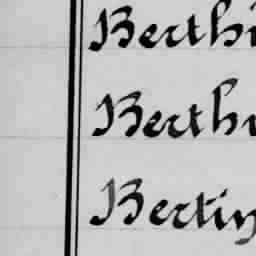 Berthi
Berthu
Bertin